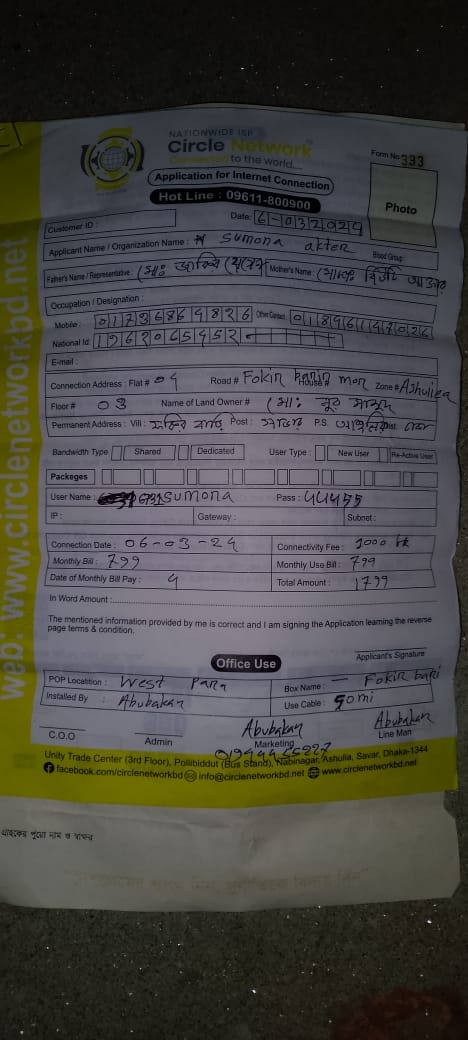 NATIONWIDE ISP
Circle Network
Connected to the world....
Form No 393
Application for Internet Connection
Hot Line : 09611-800900
Photo
Customer ID :
Date: 6-032024
Applicant Name / Organization Name : Sumona akter
Blood Group:
Father's Name / Representative : Mother's Name :
Occupation / Designation :
Mobile : 01736869826 Other Contact:
National Id:
E-mail :
Connection Address : Flat # 04 Road # Fokir House # Zone # Ashuliea
Floor # 03 Name of Land Owner # মোঃ নুর
Permanent Address : Vill : ফকির বাড়ি Post : সাভার P.S.
Bandwidth Type Shared Dedicated User Type : New User Re-Active User
Packeges
User Name : Sumona Pass : 44455
IP : Gateway : Subnet :
Connection Date : 06-03-24 Connectivity Fee : 1000 tk
Monthly Bill : 799 Monthly Use Bill : 799
Date of Monthly Bill Pay : 4 Total Amount : 1799
In Word Amount :
The mentioned information provided by me is correct and I am signing the Application learning the reverse
page terms & condition.
Applicant's Signature
Office Use
POP Locatition : West Para Box Name : — Fokir bari
Installed By : Abubakar Use Cable : 50mi
Abubakar Abubakar
C.O.O Admin Marketing Line Man
Unity Trade Center (3rd Floor), Pollibiddut (Bus Stand), Nabinagar, Ashulia, Savar, Dhaka-1344
facebook.com/circlenetworkbd info@circlenetworkbd.net www.circlenetworkbd.net
web: www.circlenetworkbd.net
গ্রাহকের পুরো নাম ও স্বাক্ষর